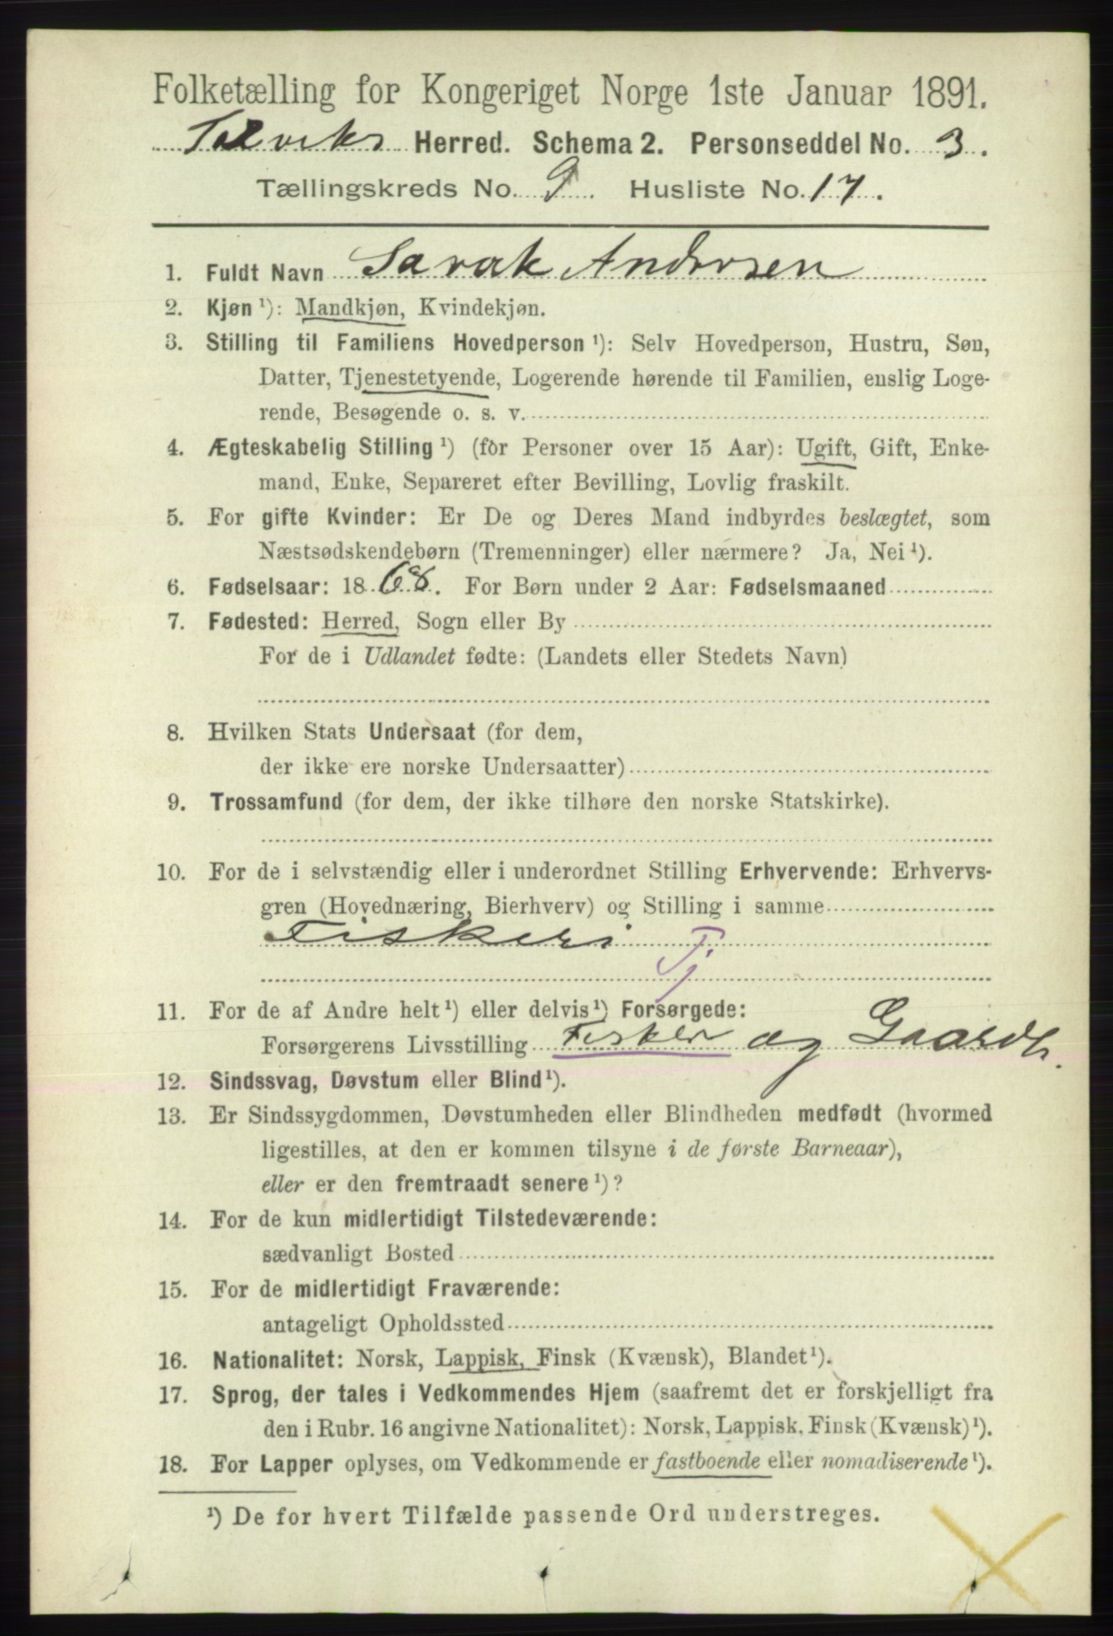 Folketælling for Kongeriget Norge 1ste Januar 1891.
Talviks Herred. Schema 2. Personseddel No. 3.
Tællingskreds No. 9. Husliste No. 17.
1. Fuldt Navn Sarak Andersen
2. Kjøn ¹): Mandkjøn, Kvindekjøn.
3. Stilling til Familiens Hovedperson ¹): Selv Hovedperson, Hustru, Søn,
Datter, Tjenestetyende, Logerende hørende til Familien, enslig Loge-
rende, Besøgende o. s. v.
4. Ægteskabelig Stilling ¹) (for Personer over 15 Aar): Ugift, Gift, Enke-
mand, Enke, Separeret efter Bevilling, Lovlig fraskilt.
5. For gifte Kvinder: Er De og Deres Mand indbyrdes beslægtet, som
Næstsødskendebørn (Tremenninger) eller nærmere? Ja, Nei ¹).
6. Fødselsaar: 1868. For Børn under 2 Aar: Fødselsmaaned
7. Fødested: Herred, Sogn eller By
For de i Udlandet fødte: (Landets eller Stedets Navn)
8. Hvilken Stats Undersaat (for dem,
der ikke ere norske Undersaatter)
9. Trossamfund (for dem, der ikke tilhøre den norske Statskirke).
10. For de i selvstændig eller i underordnet Stilling Erhvervende: Erhvervs-
gren (Hovednæring, Bierhverv) og Stilling i samme
Fiskeri
Tj
11. For de af Andre helt ¹) eller delvis ¹) Forsørgede:
Forsørgerens Livsstilling Fisker og Gaardb.
12. Sindssvag, Døvstum eller Blind ¹).
13. Er Sindssygdommen, Døvstumheden eller Blindheden medfødt (hvormed
ligestilles, at den er kommen tilsyne i de første Barneaar),
eller er den fremtraadt senere ¹)?
14. For de kun midlertidigt Tilstedeværende:
sædvanligt Bosted
15. For de midlertidigt Fraværende:
antageligt Opholdssted
16. Nationalitet: Norsk, Lappisk, Finsk (Kvænsk), Blandet ¹).
17. Sprog, der tales i Vedkommendes Hjem (saafremt det er forskjelligt fra
den i Rubr. 16 angivne Nationalitet): Norsk, Lappisk, Finsk (Kvænsk) ¹).
18. For Lapper oplyses, om Vedkommende er fastboende eller nomadiserende ¹).
¹) De for hvert Tilfælde passende Ord understreges.